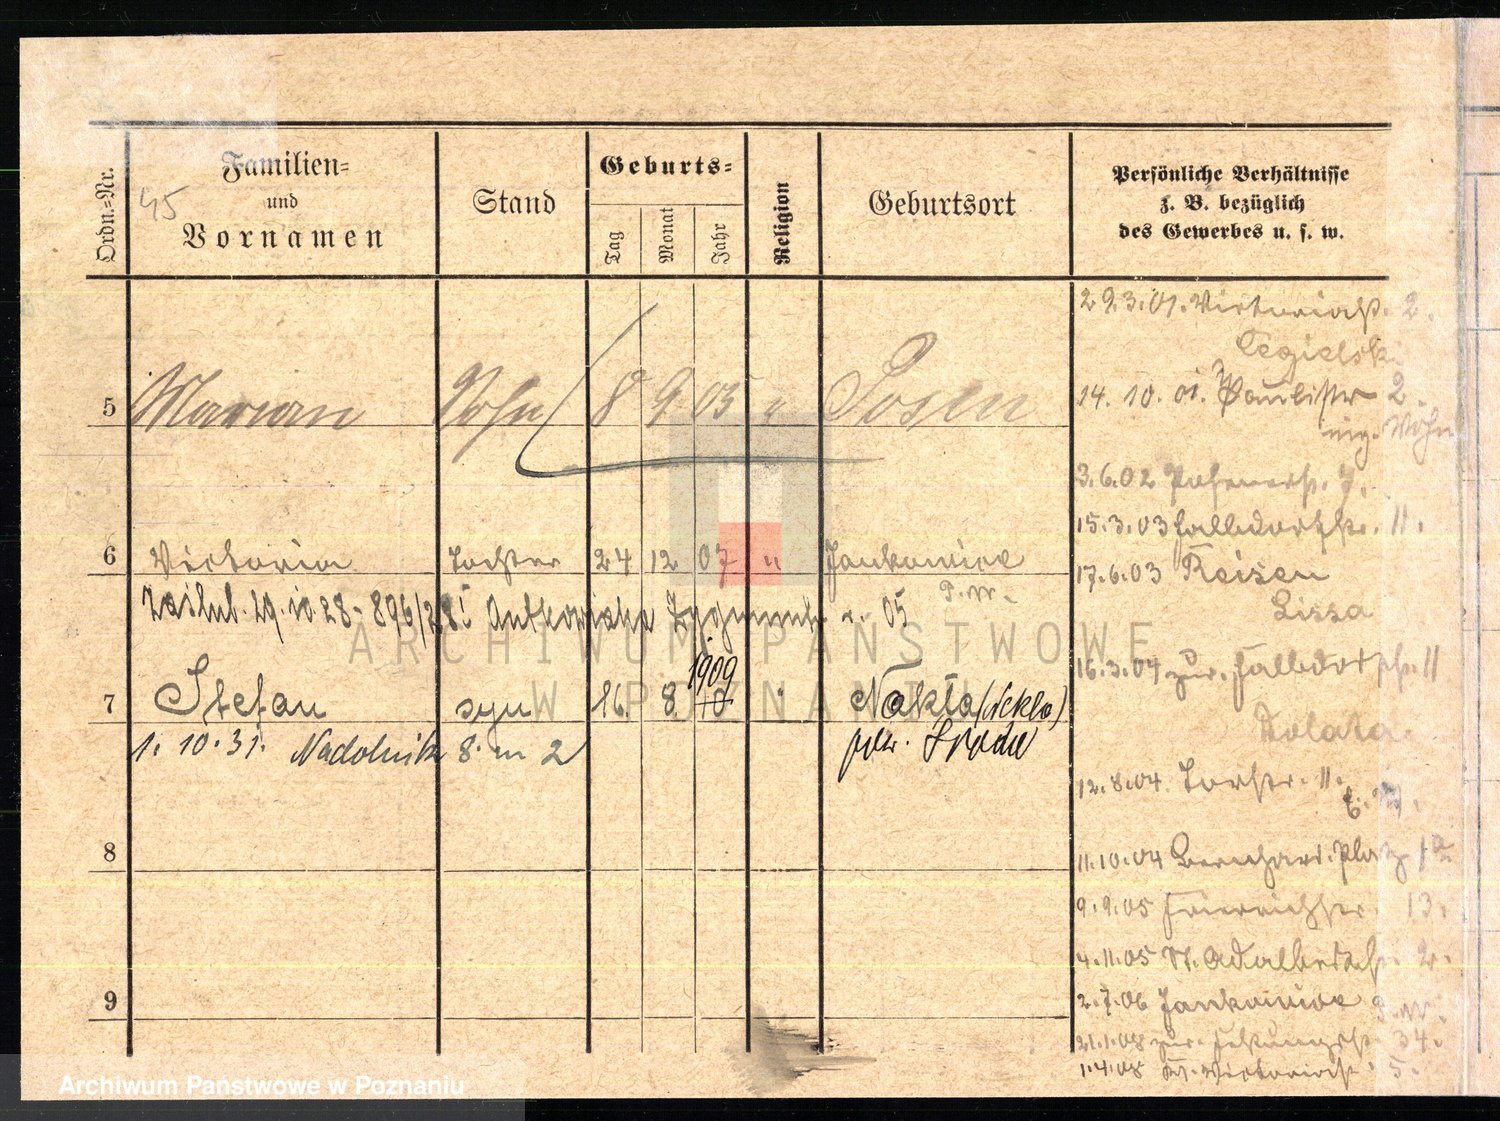 Ordn.=Nr.
45
Familien=
und
Vornamen
Stand
Geburts=
Tag
Monat
Jahr
Religion
Geburtsort
Persönliche Verhältnisse
z. B. bezüglich
des Gewerbes u. s. w.
5 Marian Sohn 8 9 05 " Posen
6 Victoria Tochter 24 12 07 " Jankowice
P.W.
29.10.28 - 896/28 Antkowiaka Zygmunt 05
7 Stefan syn 16. 8. 10 " Nakło (Nekla)
1909
1. 10. 31. Nadolnik 8. m 2 pow. Środa
8
9
29.3.01. Victoriastr. 2.
Cegielski
14. 10. 01. Paulistr 2.
Wohn
3.6.02 Posenerstr.
15.3.03 Halbdorfstr. 11.
17.6.03 Reisen
Lissa
16.3.04 zur. Halbdorfstr. 11
Kolata
12.8.04. Torstr. 11.
11.10.04 Bernhard. platz 12
9.9.05 Friedrichstr. 13.
4.11.05 St. Adalbertstr. 2.
2.7.06 Jankowice P.W.
21.1.08 zur. Festungsstr. 34.
1.4.08 Kl. Victoriastr. 5.
ARCHIWUM PAŃSTWOWE
W POZNANIU
Archiwum Państwowe w Poznaniu